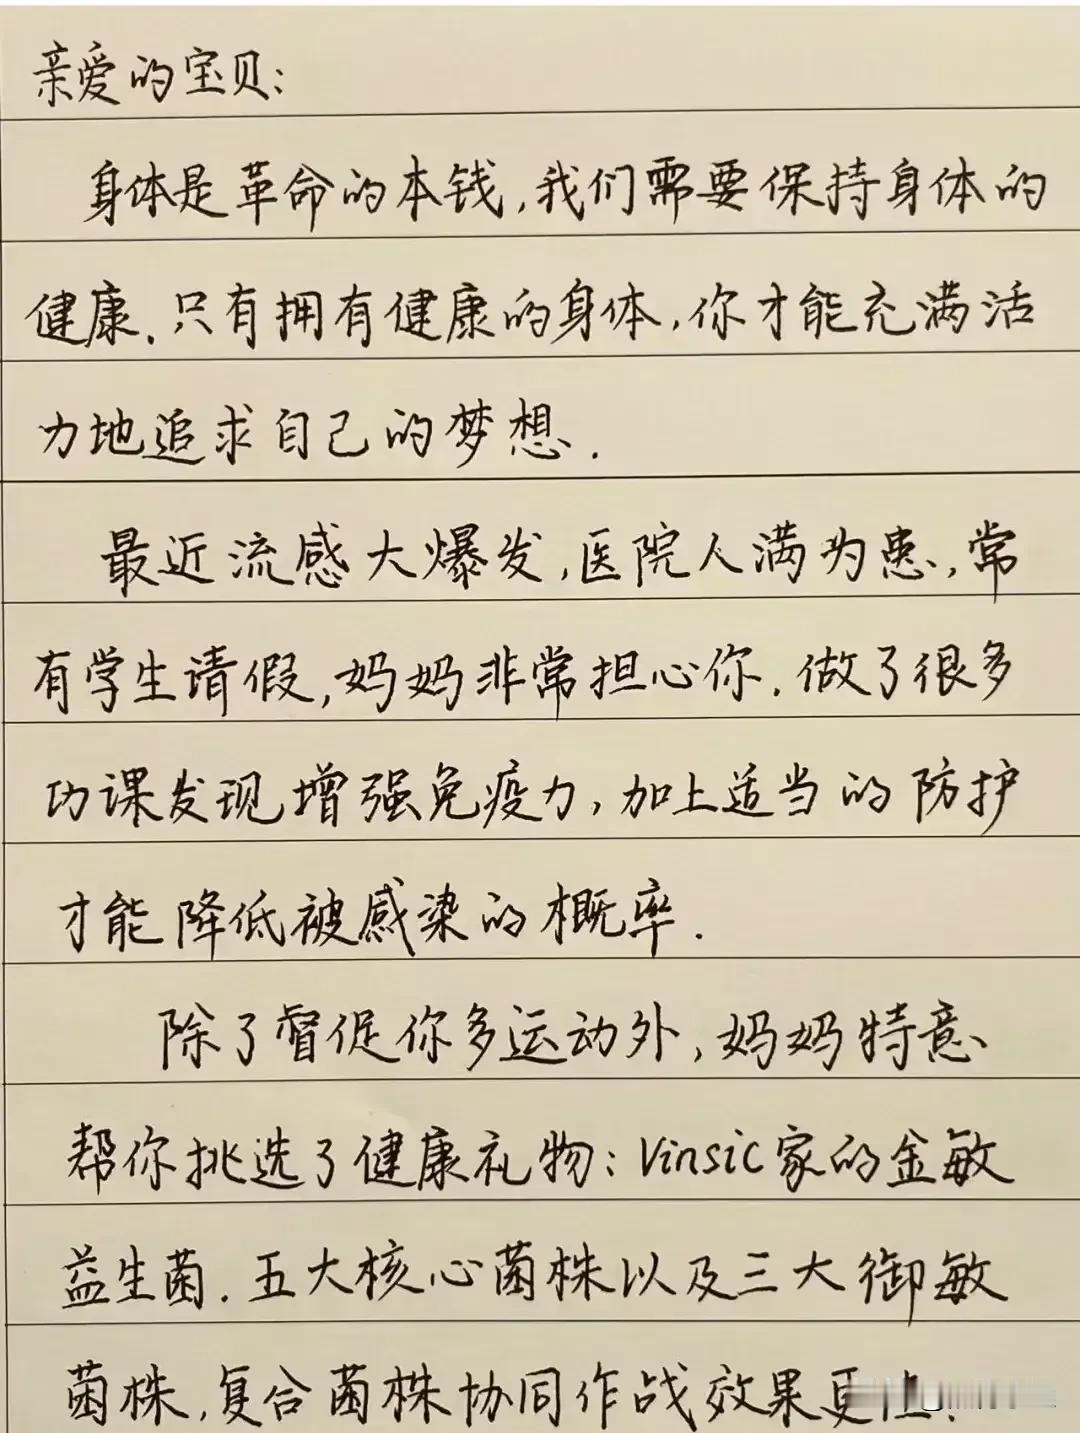 亲爱的宝贝:
身体是革命的本钱,我们需要保持身体的
健康.只有拥有健康的身体,你才能充满活
力地追求自己的梦想.
最近流感大爆发,医院人满为患,常
有学生请假,妈妈非常担心你.做了很多
功课发现增强免疫力,加上适当的防护
才能降低被感染的概率.
除了督促你多运动外,妈妈特意
帮你挑选了健康礼物:Vinsic家的金敏
益生菌.五大核心菌株以及三大御敏
菌株,复合菌株协同作战效果更佳.